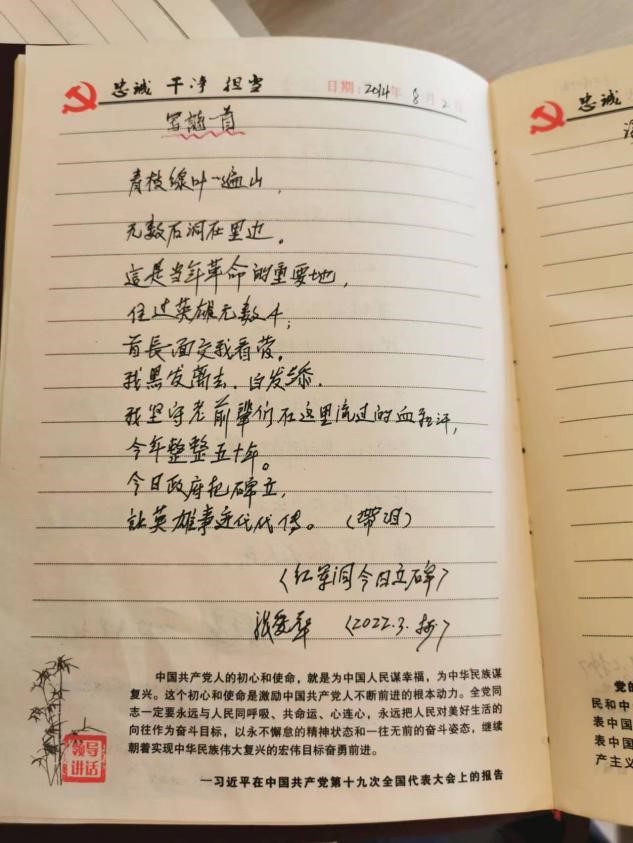 忠诚 干净 担当 日期：2014年8月2日
忠诚
写 一首
青枝绿叶一遍山，
无数石洞在里边。
這是当年革命的重要地，
住过英雄无数千；
首長一面交我看管。
我黑发离去，白发添。
我坚守老前辈们在这里流过的血和汗，
今年整整五十年。
今日政府把碑立，
让英雄事迹代代传。（ ）
〈红军洞今日立碑〉
张 〈2022.3.抄〉
中国共产党人的初心和使命，就是为中国人民谋幸福，为中华民族谋
复兴。这个初心和使命是激励中国共产党人不断前进的根本动力。全党同
志一定要永远与人民同呼吸、共命运、心连心，永远把人民对美好生活的
向往作为奋斗目标，以永不懈怠的精神状态和一往无前的奋斗姿态，继续
朝着实现中华民族伟大复兴的宏伟目标奋勇前进。
—习近平在中国共产党第十九次全国代表大会上的报告
领导
讲话
党的
民和中
表中国
表中国
产主义